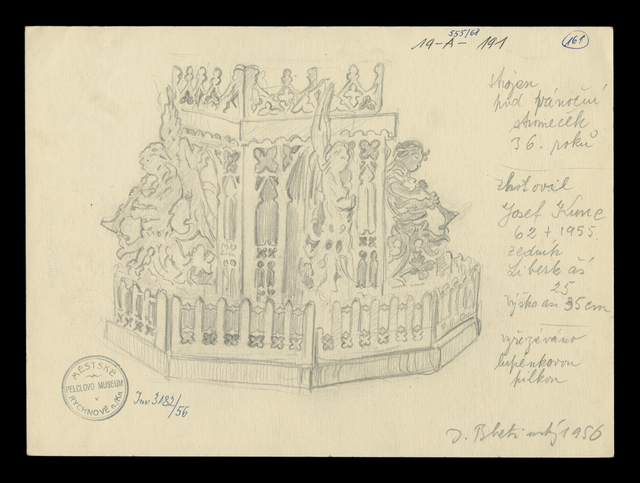 555/68
19-A- 191
161
stojan
pod vánoční
stromeček
36. roků
zhotovil
Josef Kunc
62 + 1955
zedník
Liberk čś
25
výška asi 35 cm
vyřezáváno
lupénkovou
pilkou
MĚSTSKÉ
PELCLOVO MUSEUM
V
RYCHNOVĚ n/Kn
Inv 3182/56
J. 1956